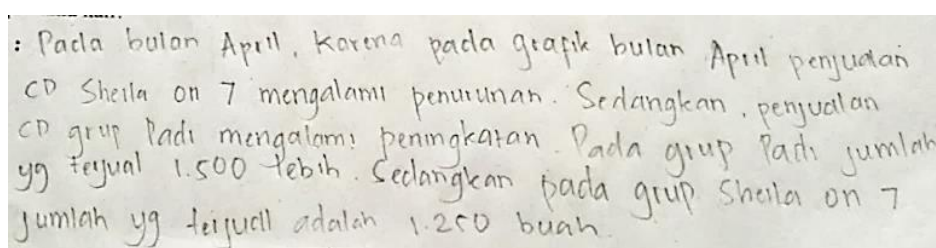 : Pada bulan April, Karena pada grafik bulan April penjualan
CD Sheila on 7 mengalami penurunan. Sedangkan, penjualan
CD grup Padi mengalami peningkatan. Pada grup Padi jumlah
yg terjual 1.500 lebih. Sedangkan pada grup Sheila on 7
jumlah yg terjual adalah 1.250 buah.